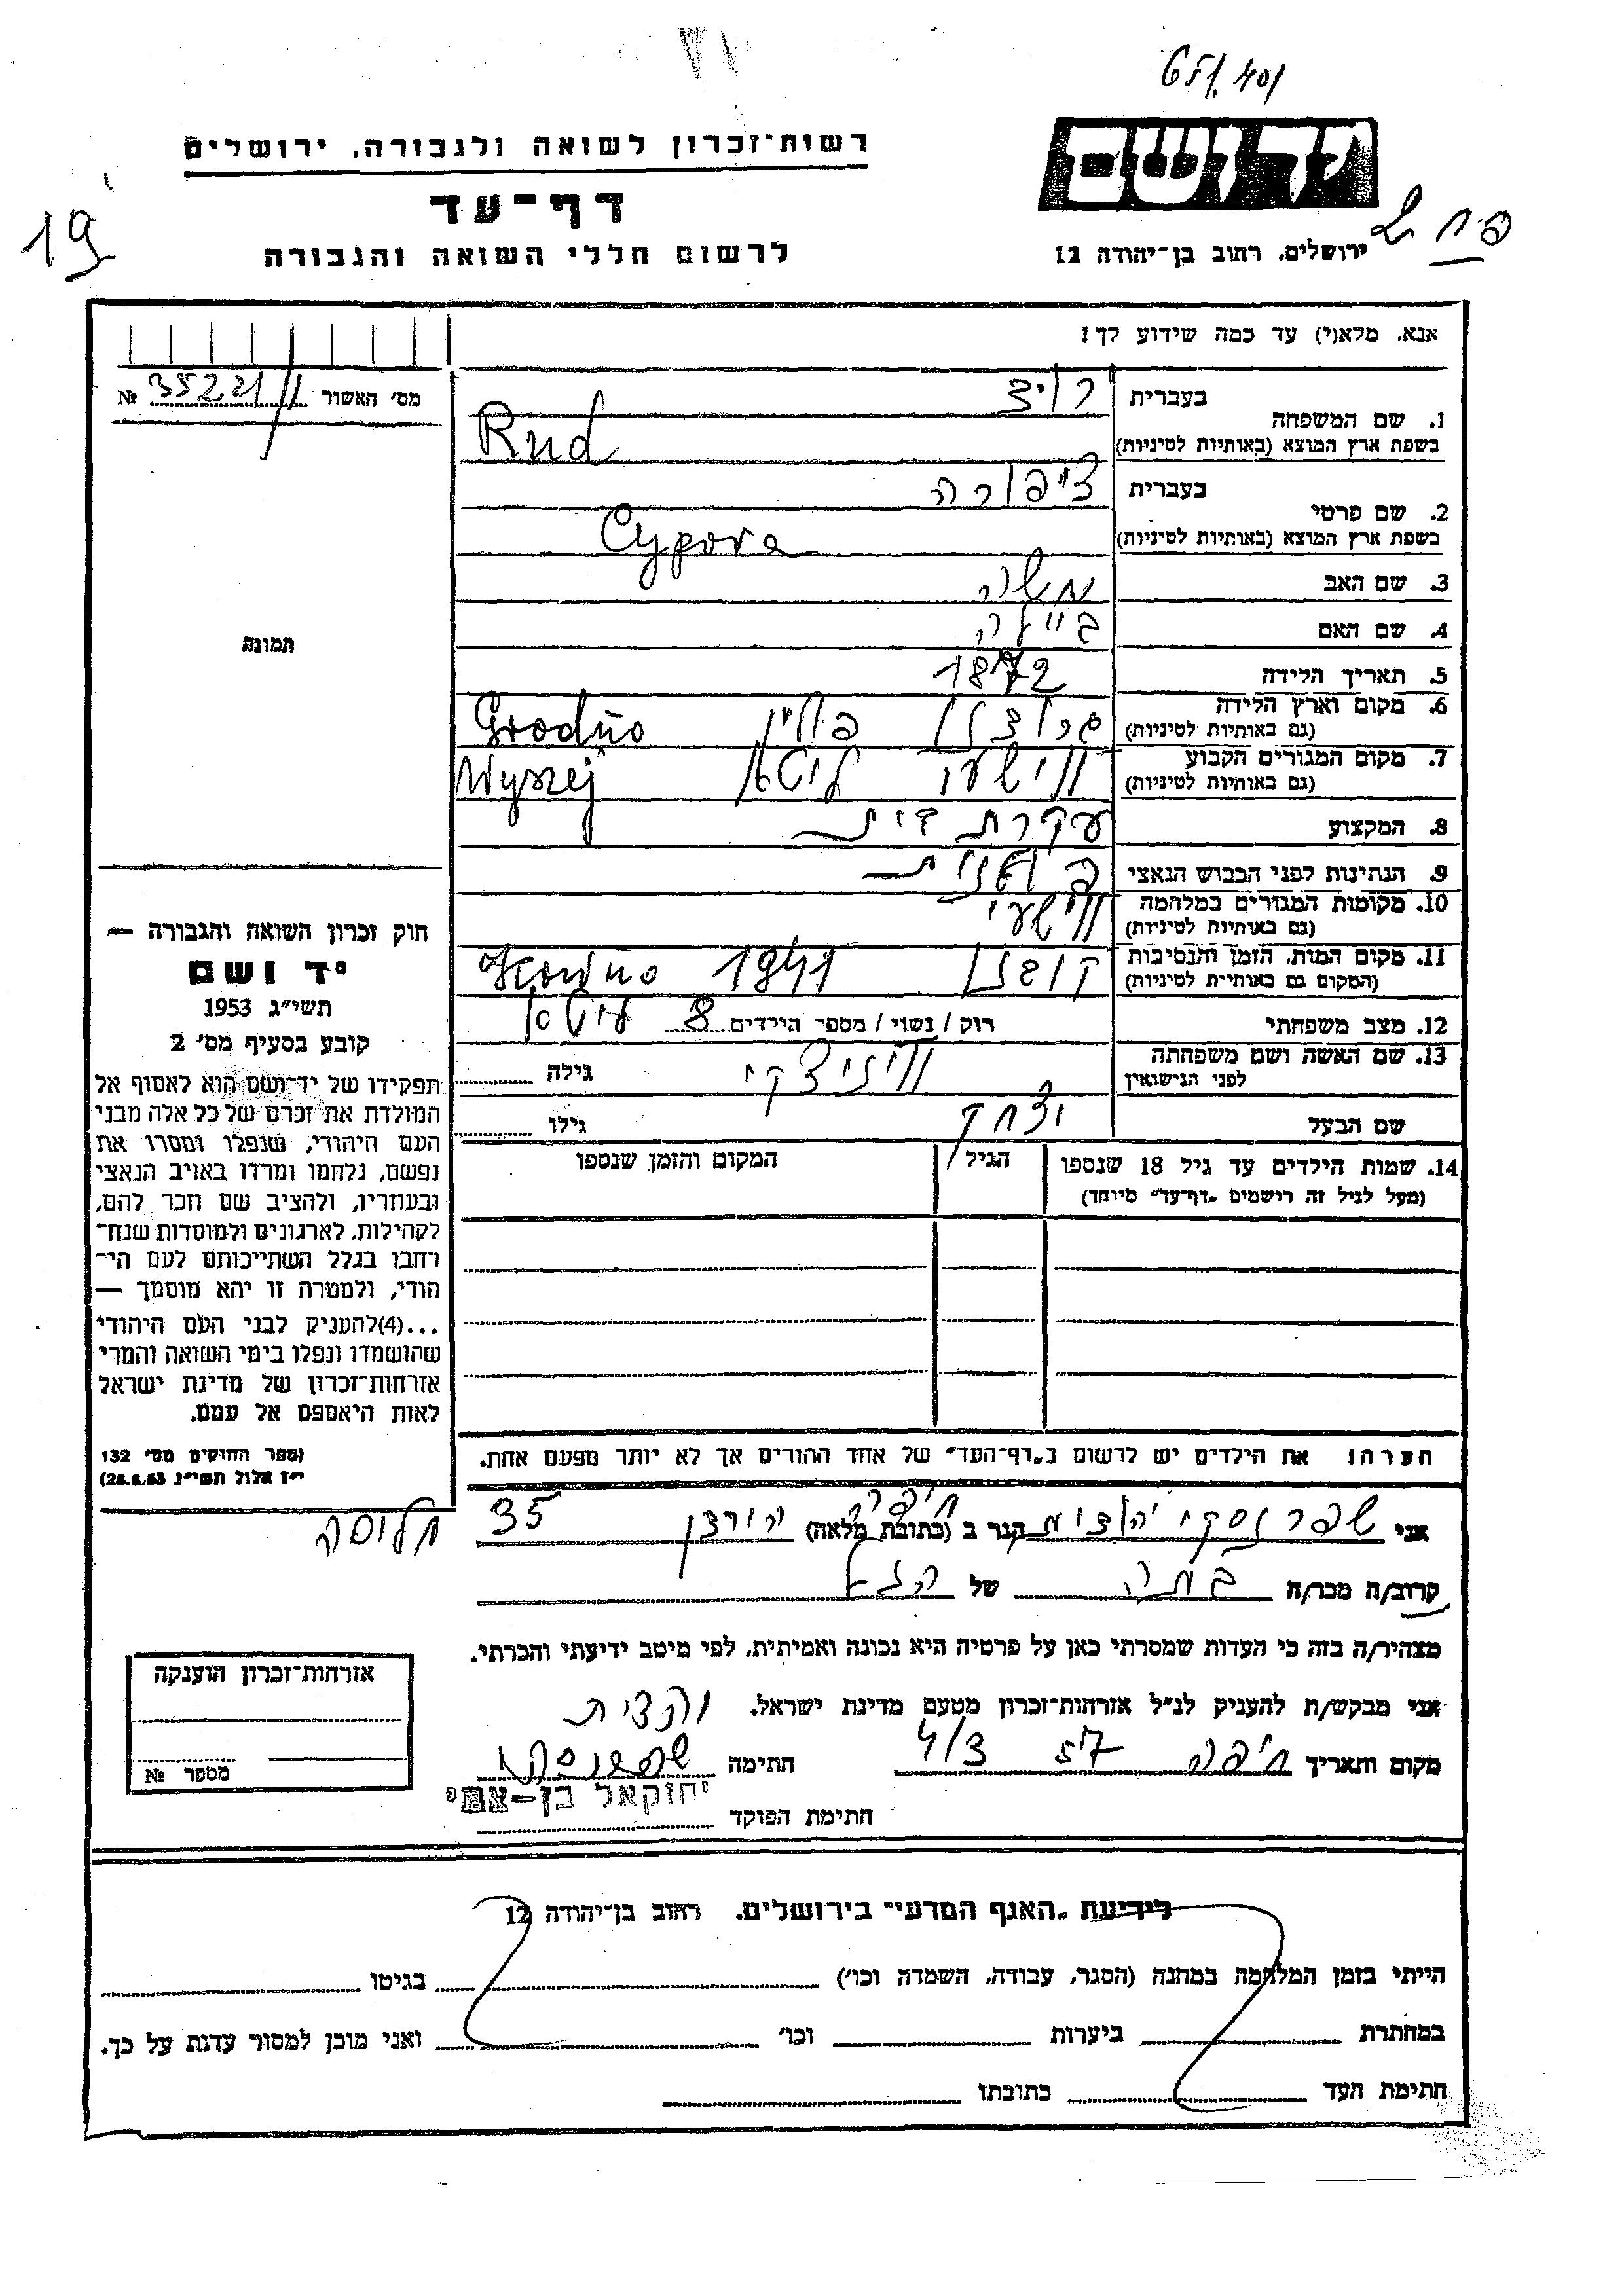 יד ושם
רשות־זכרון לשואה ולגבורה, ירושלים
דף־עד
ירושלים, רחוב בן־יהודה 12
לרשום חללי השואה והגבורה
19
אנא, מלא(י) עד כמה שידוע לך!
מס׳ האשור № 35221
1. שם המשפחה
בעברית
בשפת ארץ המוצא (באותיות לטיניות) Rud
2. שם פרטי
בעברית ציפורה
בשפת ארץ המוצא (באותיות לטיניות) Cypora
3. שם האב משה
4. שם האם ביילה
תמונה
5. תאריך הלידה 1872
6. מקום וארץ הלידה פולין Grodno
(גם באותיות לטיניות)
7. מקום המגורים הקבוע ליטא Wyszej
(גם באותיות לטיניות)
8. המקצוע עקרת בית
9. הנתינות לפני הכבוש הנאצי
10. מקומות המגורים במלחמה
(גם באותיות לטיניות)
11. מקום המות, הזמן והנסיבות 1941
(המקום גם באותיות לטיניות)
12. מצב משפחתי רוק / נשוי / מספר הילדים 8
13. שם האשה ושם משפחתה
לפני הנישואין
גילה
שם הבעל יצחק גילו
14. שמות הילדים עד גיל 18 שנספו
(מעל לגיל זה רושמים „דף־עד״ מיוחד)
הגיל
המקום והזמן שנספו
הערה! את הילדים יש לרשום ב„דף־העד״ של אחד ההורים אך לא יותר מפעם אחת.
חוק זכרון השואה והגבורה —
יד ושם
תשי״ג 1953
קובע בסעיף מס׳ 2
תפקידו של יד־ושם הוא לאסוף אל
המולדת את זכרם של כל אלה מבני
העם היהודי, שנפלו ומסרו את
נפשם, נלחמו ומרדו באויב הנאצי
ובעוזריו, ולהציב שם וזכר להם,
לקהילות, לארגונים ולמוסדות שנח־
רבו בגלל השתייכותם לעם הי־
הודי, ולמטרה זו יהא מוסמך —
...(4)להעניק לבני העם היהודי
שהושמדו ונפלו בימי השואה והמרי
אזרחות־זכרון של מדינת ישראל
לאות היאספם אל עמם.
(ספר החוקים מס׳ 132
י״ז אלול תשי״ג 28.8.53)
אני הגר ב (כתובת מלאה) חיפה 35
קרוב/ה מכר/ה של
מצהיר/ה בזה כי העדות שמסרתי כאן על פרטיה היא נכונה ואמיתית, לפי מיטב ידיעתי והכרתי.
אני מבקש/ת להעניק לנ״ל אזרחות־זכרון מטעם מדינת ישראל.
מקום ותאריך חיפה 57 4/3 חתימה
יחזקאל
חתימת הפוקד
אזרחות־זכרון הוענקה
מספר №
לידיעת „האגף המדעי״ בירושלים, רחוב בן־יהודה 12
הייתי בזמן המלחמה במחנה (הסגר, עבודה, השמדה וכו׳) בגיטו
במחתרת ביערות וכו׳ ואני מוכן למסור עדות על כך.
חתימת העד כתובתו